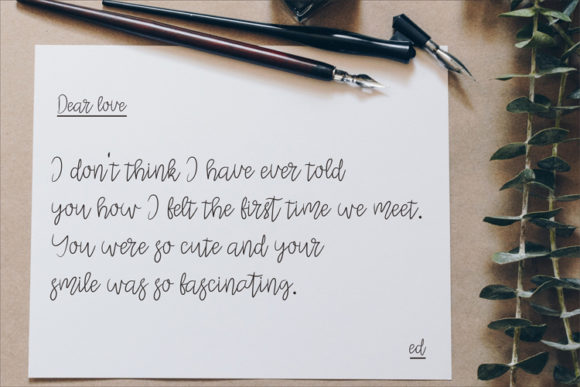 Dear love
I don't think I have ever told
you how I felt the first time we meet.
You were so cute and your
smile was so fascinating.
ed